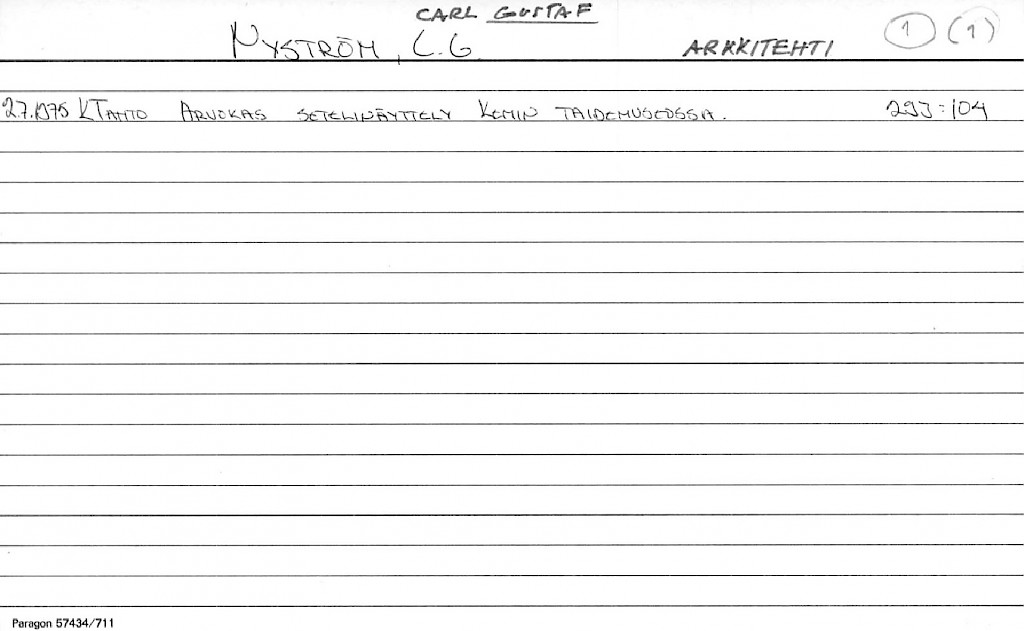 CARL GUSTAF
NYSTRÖM, C.G. ARKKITEHTI 1 (1)
2.7.1975 KTAHTO ARVOKAS SETELINÄYTTELY KEMIN TAIDEMUSEOSSA. 293:104
Paragon 57434/711